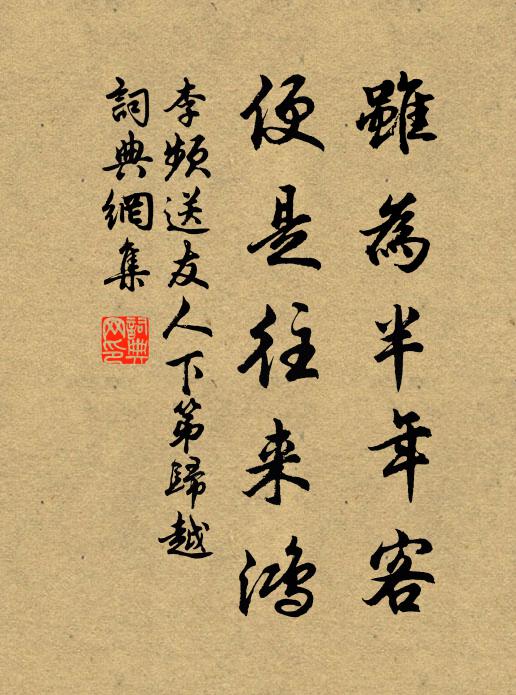 雖為半年客
便是往来鴻
李頻送友人下第歸越
詞典網集
詞典网印